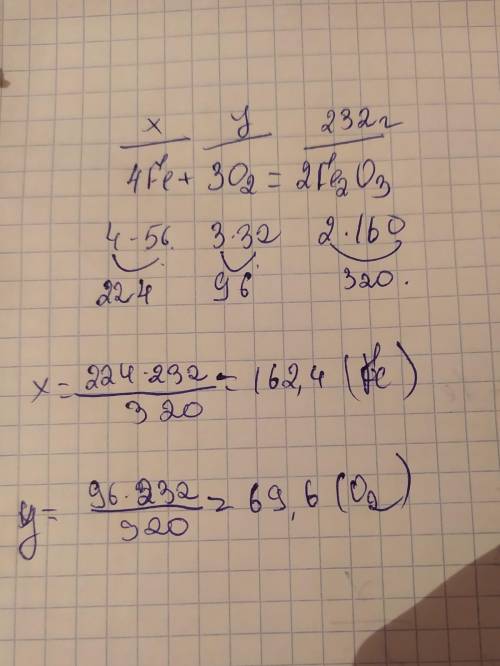 x y 232г
4Fe + 3O2 = 2Fe2O3
4·56 3·32 2·160
224 96 320.
x = 224·232 / 320 = 162,4 (Fe)
y = 96·232 / 320 = 69,6 (O2)